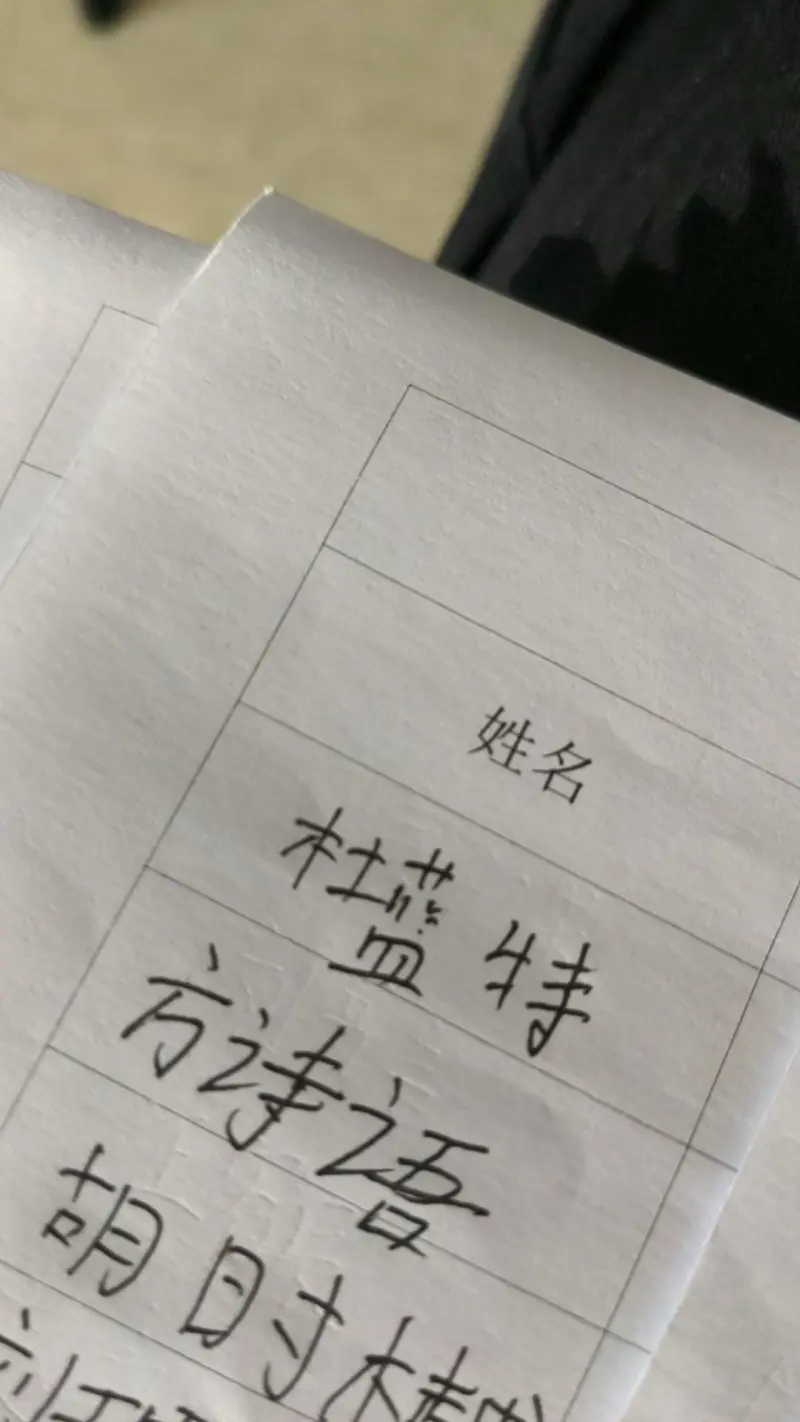 姓名
杜蓝特
方诗语
胡时